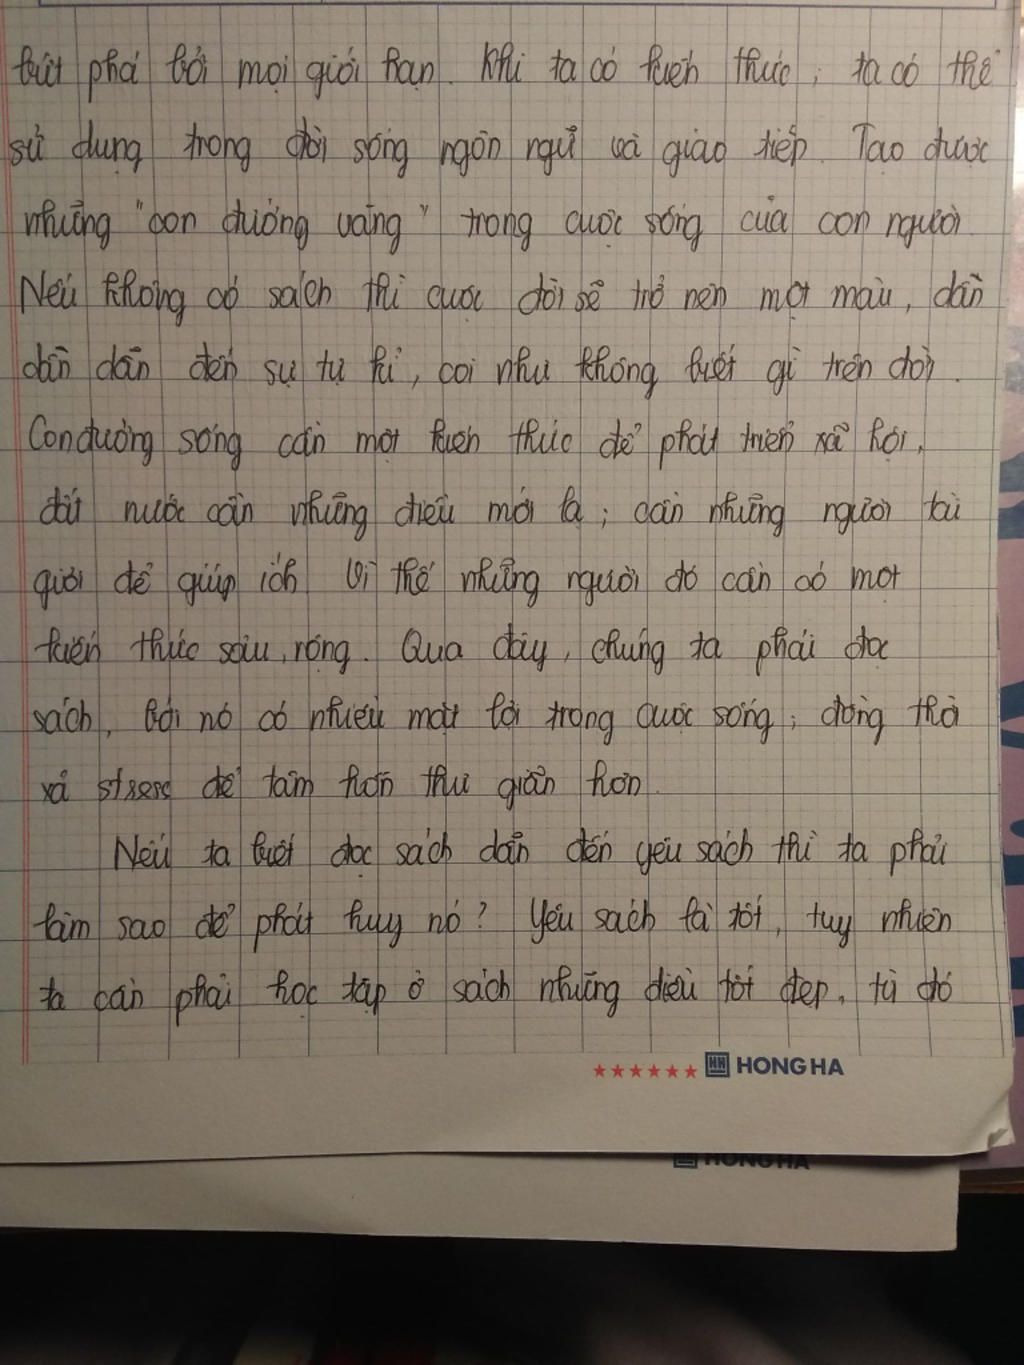 bứt phá bởi mọi giới hạn. Khi ta có kiến thức, ta có thể
sử dụng trong đời sống ngôn ngữ và giao tiếp. Tạo được
những "con đường vàng" trong cuộc sống của con người.
Nếu không có sách thì cuộc đời sẽ trở nên một màu, dần
dần dẫn đến sự tự kỉ, coi như không biết gì trên đời.
Con đường sống cần một kiến thức để phát triển xã hội,
đất nước cần những điều mới lạ; cần những người tài
giỏi để giúp ích. Vì thế những người đó cần có một
kiến thức sâu, rộng. Qua đây, chúng ta phải đọc
sách, bởi nó có nhiều mặt lợi trong cuộc sống; đồng thời
xả để tâm hồn thư giãn hơn.
Nếu ta biết đọc sách dẫn đến yêu sách thì ta phải
làm sao để phát huy nó? Yêu sách là tốt, tuy nhiên
ta cần phải học tập ở sách những điều tốt đẹp, từ đó
HONG HA
HONG HA